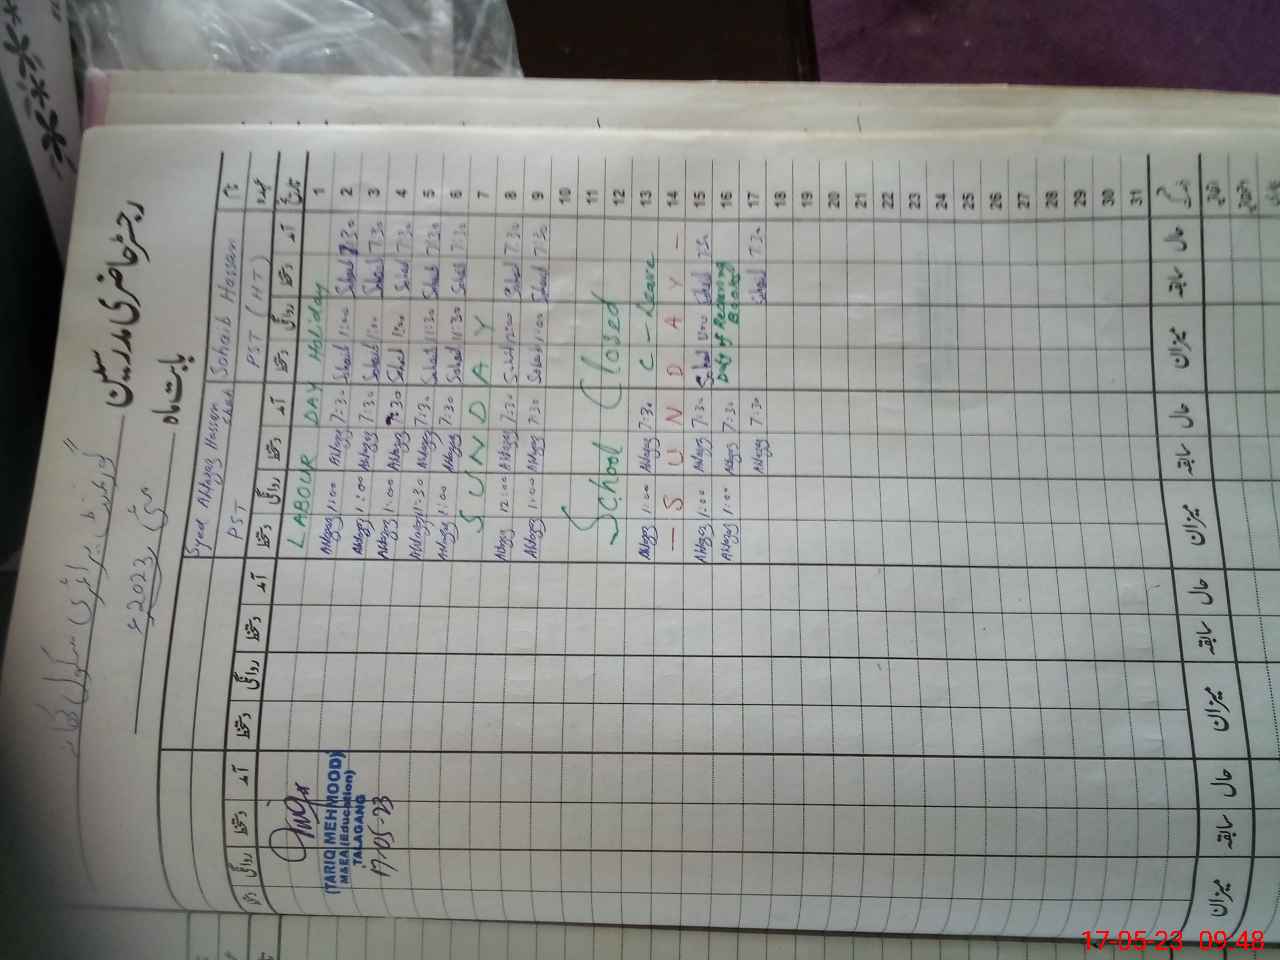 رجسٹر حاضری مدرسین
بابت ماہ مئی 2023ء
نام Sohaib Hassan Syed Ahtazaz Hassan Shah
عہدہ PST (HT) PST
تاریخ آمد دستخط روانگی دستخط آمد دستخط روانگی دستخط آمد دستخط روانگی دستخط آمد دستخط روانگی
1 LABOUR DAY Holiday
2 Sohaib 7:30 Sohaib 1:00 Ahtazaz 7:30 Ahtazaz 1:00
3 Sohaib 7:30 Sohaib 1:00 Ahtazaz 7:30 Ahtazaz 1:00
4 Sohaib 7:30 Sohaib 1:00 Ahtazaz 7:30 Ahtazaz 1:00
5 Sohaib 7:30 Sohaib 11:30 Ahtazaz 7:30 Ahtazaz 11:30
6 Sohaib 7:30 Sohaib 11:30 Ahtazaz 7:30 Ahtazaz 1:00
7 SUNDAY
8 Sohaib 7:30 Sohaib 12:00 Ahtazaz 7:30 Ahtazaz 12:00
9 Sohaib 7:30 Sohaib 1:00 Ahtazaz 7:30 Ahtazaz 1:00
10
11 School Closed
12
13 C - Leave Ahtazaz 7:30 Ahtazaz 1:00
14 — SUNDAY —
15 Sohaib 7:30 Sohaib Ahtazaz 7:30 Ahtazaz 1:00
16 Books Ahtazaz 7:30 Ahtazaz 1:00
17 Sohaib 7:30 Ahtazaz 7:30
18
19
20
21
22
23
24
25
26
27
28
29
30
31
حال سابقہ میزان حال سابقہ میزان حال سابقہ میزان حال سابقہ میزان
(TARIQ MEHMOOD)
M&EA (Education)
TALAGANG
17-05-23
17-05-23 09:48